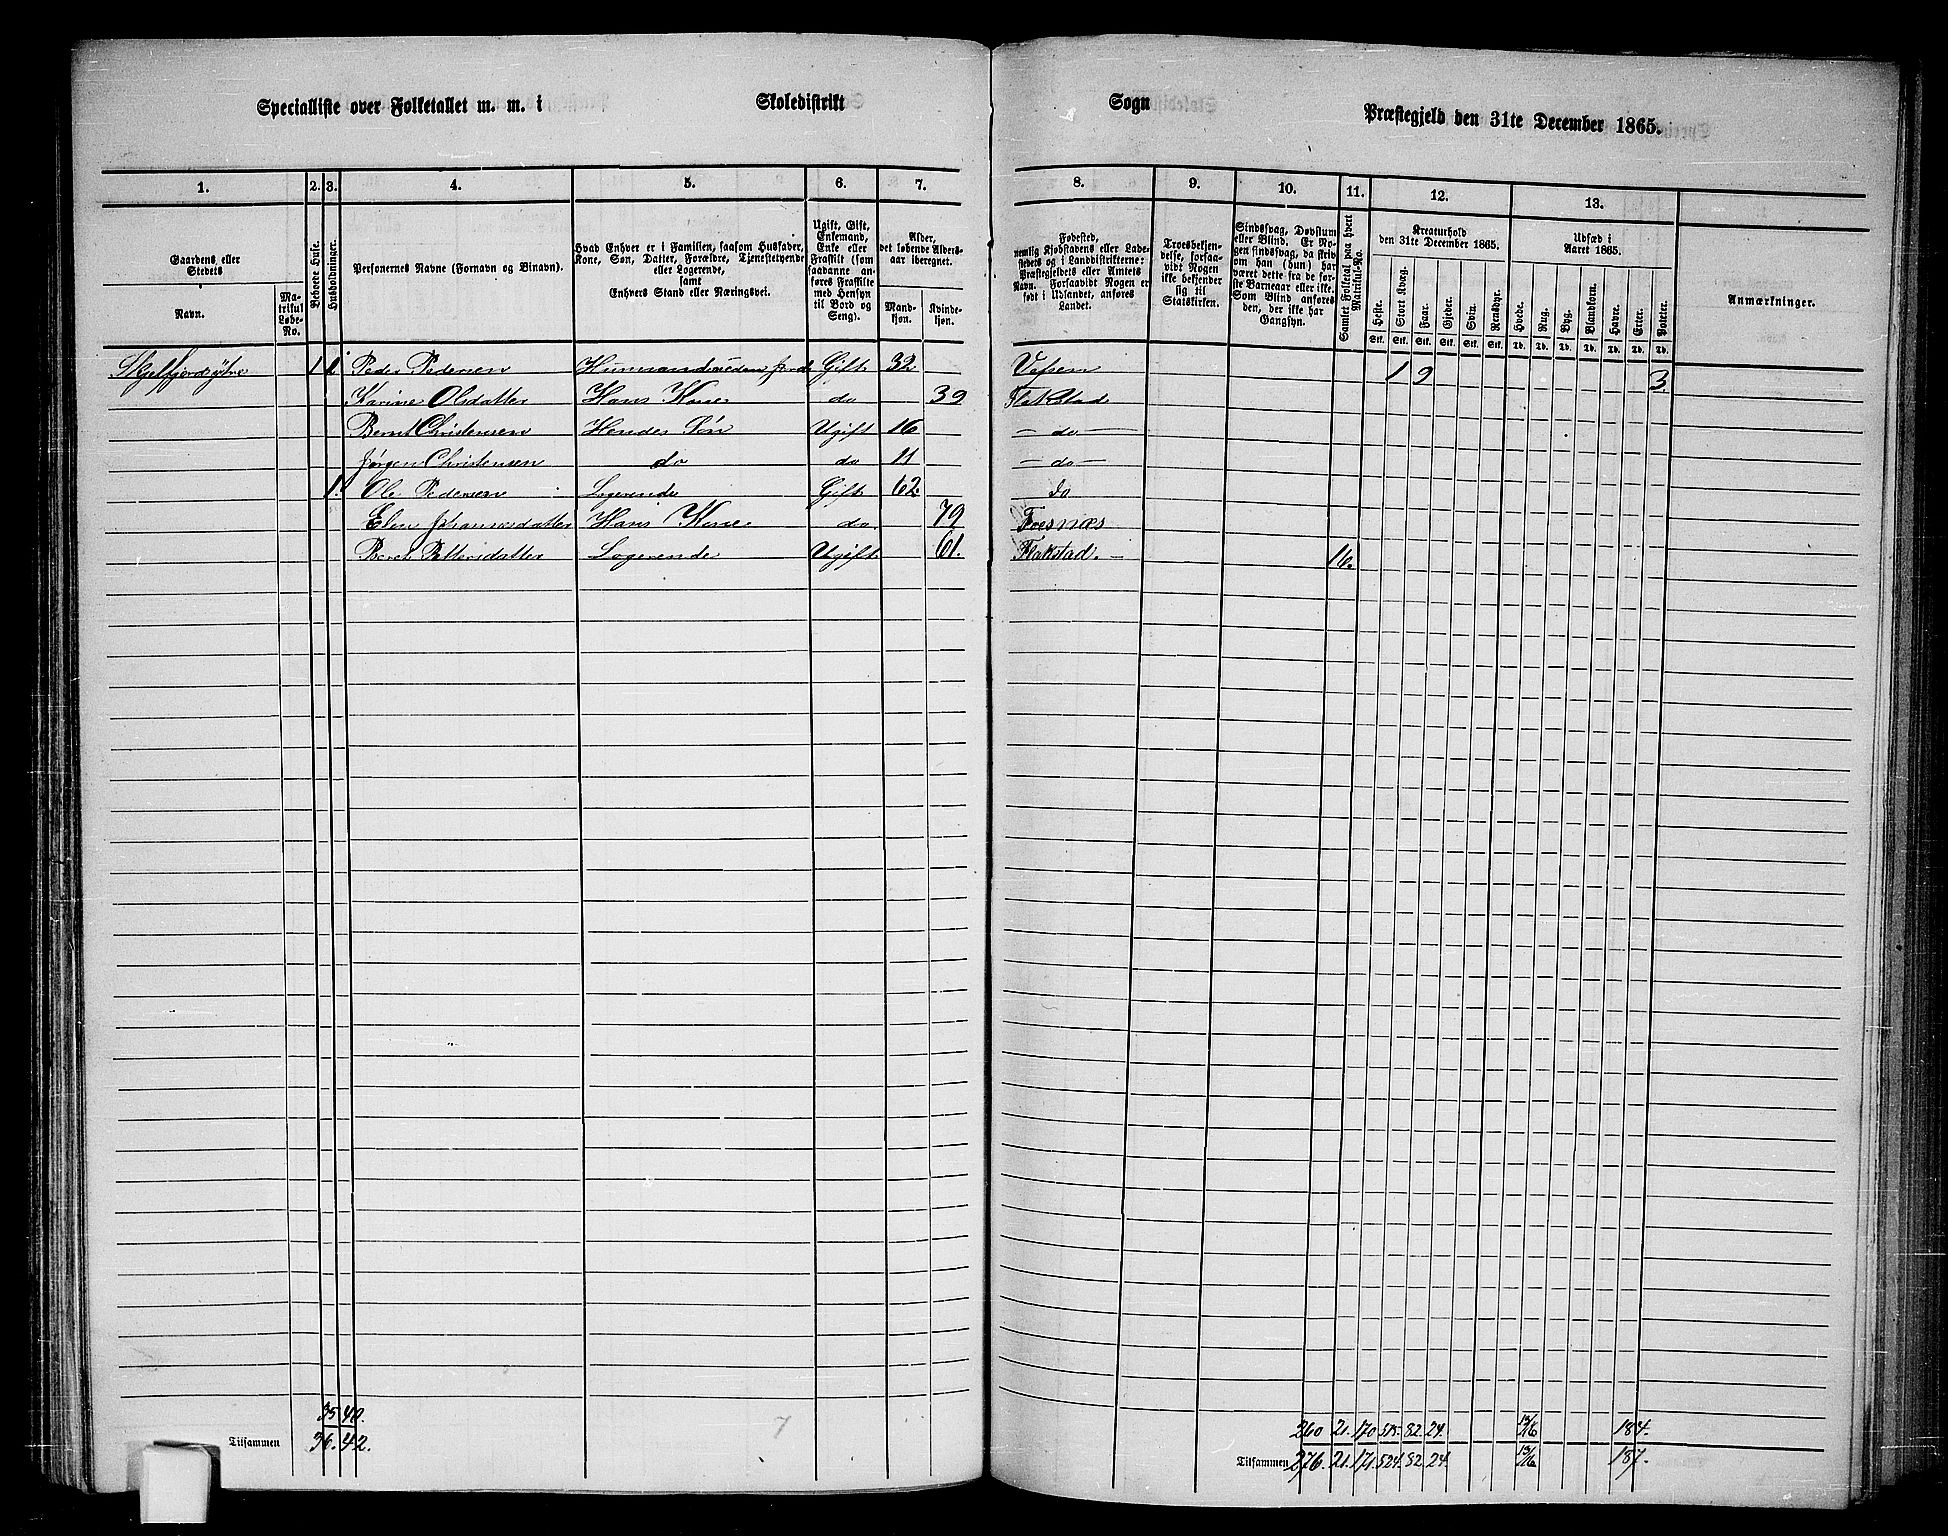 Specialliste over Folketallet m. m. i Skoledistrikt Sogn Præstegjeld den 31te December 1865.
1. 2. 3. 4. 5. 6. 7. 8. 9. 10. 11. 12. 13.
Gaardens eller Stedets
Navn.
Matrikul Løbe-No.
Beboede Huse.
Husholdninger.
Personernes Navne (Fornavn og Binavn).
Hvad Enhver er i Familien, saasom Husfader, Kone, Søn, Datter, Forældre, Tjenestetyende eller Logerende,
samt
Enhvers Stand eller Næringsvei.
Ugift, Gift, Enkemand, Enke eller Fraskilt (som saadanne anføres Fraskilte med Hensyn til Bord og Seng).
Alder, det løbende Alders-aar iberegnet.
Mandkjøn. Kvindekjøn.
Fødested, nemlig Kjøbstadens eller Ladestedets og i Landdistrikterne: Præstegjeldets eller Amtets Navn. Forsaavidt Nogen er født i Udlandet, anføres Landet.
Troesbekjendelse, forsaavidt Nogen ikke bekjender sig til Statskirken.
Sindssvag, Døvstum eller Blind. Er Nogen sindssvag, da skrives om han (hun) har været dette fra de første Barneaar eller ikke. Som Blind anføres den, der ikke har Gangsyn.
Samlet Folketal paa hvert Matrikul-No.
Kreaturhold den 31te December 1865.
Heste. Stort Kvæg. Faar. Gjeder. Svin. Rensdyr.
Stk. Stk. Stk. Stk. Stk. Stk.
Udsæd i Aaret 1865.
Hvede. Rug. Byg. Blandkorn. Havre. Erter. Poteter.
Td. Td. Td. Td. Td. Td. Td.
Anmærkninger.
1 1 Peder Pedersen Gift 32 Vefsen 1 9 3
Karine Olsdatter Hans Kone do 39 Flakstad
Bernt Christensen Hendes Søn Ugift 16 — do —
Jørgen Christensen do do 11 — do —
1. Ole Pedersen Logerende Gift 62. do
Elen Johannesdatter Hans Kone do 79 Foesnæs
Beret Pettersdatter Logerende Ugift 61. Flakstad. 16.
35 40. 260 21. 170 515. 82. 24. 184.
Tilsammen 36. 42. 7 Tilsammen 276. 21. 171 524. 82. 24. 187.